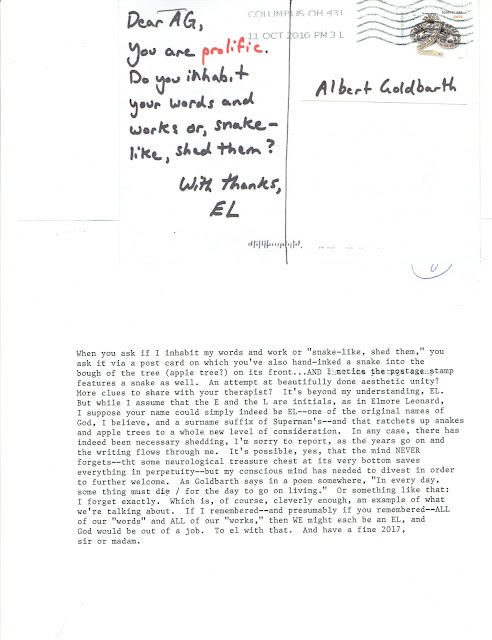 Dear AG,
You are prolific.
Do you inhabit
your words and
works or, snake-
like, shed them?
With thanks,
EL
COLUMBUS OH 431
11 OCT 2016 PM 3 L
Albert Goldbarth
When you ask if I inhabit my words and work or "snake-like, shed them," you
ask it via a post card on which you've also hand-inked a snake into the
bough of the tree (apple tree?) on its front...AND I notice the postage stamp
features a snake as well.  An attempt at beautifully done aesthetic unity?
More clues to share with your therapist?  It's beyond my understanding, EL.
But while I assume that the E and the L are initials, as in Elmore Leonard,
I suppose your name could simply indeed be EL--one of the original names of
God, I believe, and a surname suffix of Superman's--and that ratchets up snakes
and apple trees to a whole new level of consideration.  In any case, there has
indeed been necessary shedding, I'm sorry to report, as the years go on and
the writing flows through me.  It's possible, yes, that the mind NEVER
forgets--tht some neurological treasure chest at its very bottom saves
everything in perpetuity--but my conscious mind has needed to divest in order
to further welcome.  As Goldbarth says in a poem somewhere, "In every day,
some thing must die / for the day to go on living."  Or something like that:
I forget exactly.  Which is, of course, cleverly enough, an example of what
we're talking about.  If I remembered--and presumably if you remembered--ALL
of our "words" and ALL of our "works," then WE might each be an EL, and
God would be out of a job.  To el with that.  And have a fine 2017,
sir or madam.